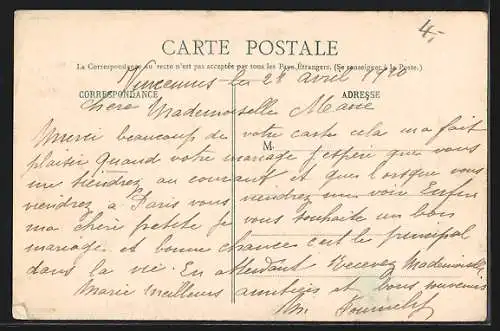 4,-
CARTE POSTALE
La Correspondance au recto n'est pas acceptée par tous les Pays Étrangers. (Se renseigner à la Poste.)
Vincennes le 28 avril 1910
CORRESPONDANCE ADRESSE
Chère Mademoiselle Marie
M
Merci beaucoup de votre carte cela ma fait
plaisir Quand votre mariage J'espère que vous
me tiendrez au courant et que lorsque vous
viendrez a Paris vous viendrez me voir Enfin
ma chère petite je vous souhaite un bon
mariage et bonne chance c'est le principal
dans la vie. En attendant Recevez Mademoiselle
Marie meilleurs amitiées et bons souvenirs